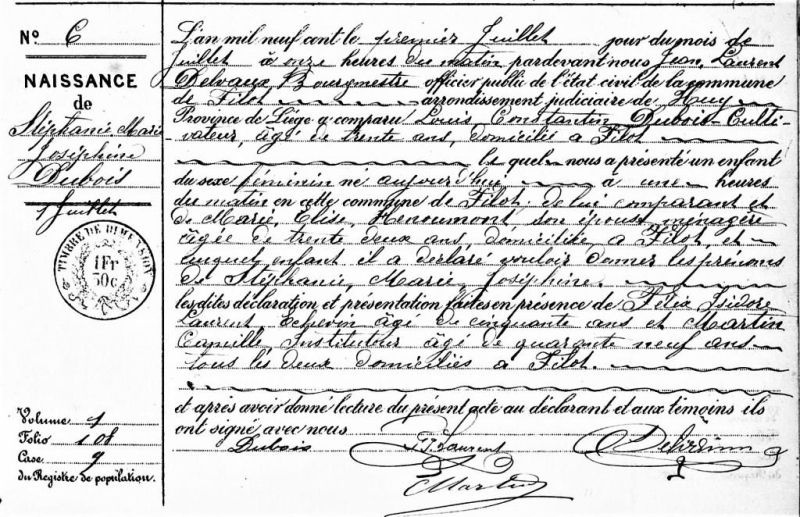 N° 6
NAISSANCE
de
Stéphanie Marie
Joséphine
Dubois
1 Juillet
TIMBRE DE DIMENSION
1 Fr
50 c
L'an mil neuf cent le premier Juillet jour du mois de
Juillet à onze heures du matin pardevant nous Jean Laurent
Delvaux, Bourgmestre officier public de l'état civil de la commune
de Filot arrondissement judiciaire de Huy
Province de Liége a comparu Louis Constantin Dubois Culti-
vateur, âgé de trente ans, domicilié à Filot
le quel nous a présenté un enfant
du sexe féminin né aujourd'hui à une heures
du matin en cette commune de Filot, de lui comparant et
de Marie, Elise, Henoumont, son épouse ménagère
âgée de trente deux ans, domiciliée, à Filot, et
auquel enfant il a déclaré vouloir donner les prénoms
de Stéphanie, Marie, Joséphine.
les dites déclaration et présentation faites en présence de Félix Isidore
Laurent, Echevin âgé de cinquante ans et Martin
Camille, Instituteur âgé de quarante neuf ans
tous les deux domiciliés à Filot.
et après avoir donné lecture du présent acte au déclarant et aux témoins ils
ont signé avec nous
Dubois Laurent
Martin
Volume 1
Folio 108
Case 9
du Registre de population.